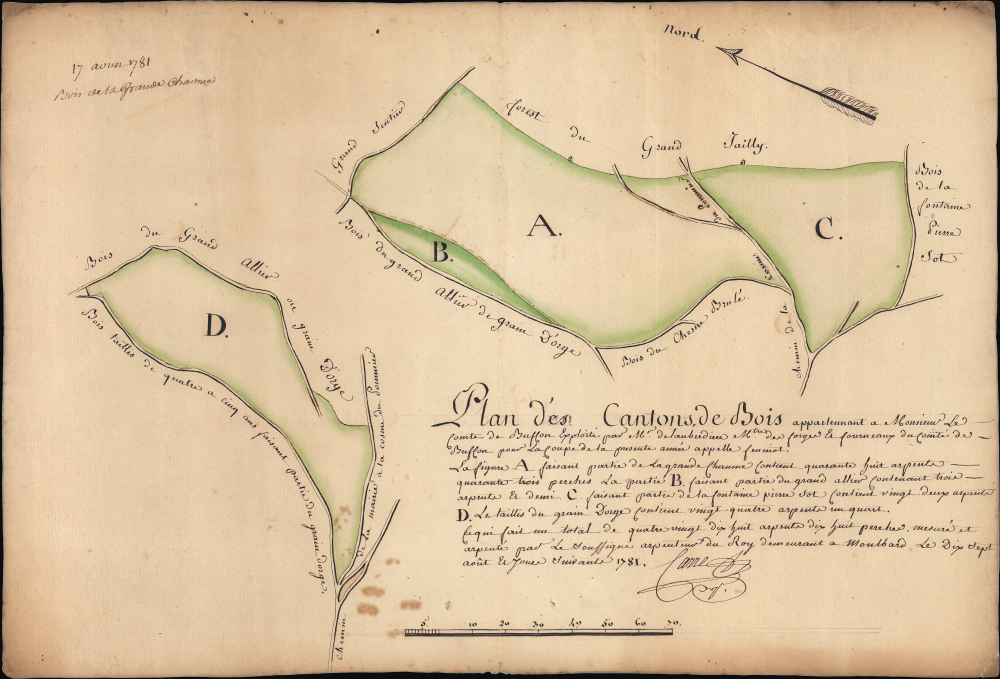 17 aoust 1781
Bois de la Grande Chaume
Nord.
Grand Sentier
forest du Grand Jailly.
Bois de la fontaine Pierre Sot
A.
B.
C.
D.
du Commier
Cosme
chemin de la
Bois du grand Allier de grain D'orge
Bois du Chesne Brulé.
Bois du Grand Allier ou grain D'orge
Bois tailles de quatre a cinq ans faisant partie du grain d'orge.
chemin de la mairie a la cosme du Commier
Plan des Cantons de Bois appartenant a Monsieur Le
Comte de Buffon Exploité par Mr. de Lauberdiere Mtre de forge Et fourneaux du Comté de
Buffon pour La Coupe de la presente année appelle feuniot.
La figure A faisant partie de La grande Chaume Contient quarante huit arpents
quarante trois perches La partie B. faisant partie du grand allier contenant trois
arpente Et demi. C faisant partie de la fontaine pierre Sot Contient vingt deux arpents
D. Le taillis du grain D'orge Contient vingt quatre arpents un quart.
Ce qui fait un total de quatre vingt dix huit arpents dix huit perches. mesuré et
arpenté par Le Soussigné arpenteur du Roy demeurant a Montbard. Le Dix Sept
août Et Jours Suivants 1781.
5. 10 20 30 40 50 60 70.